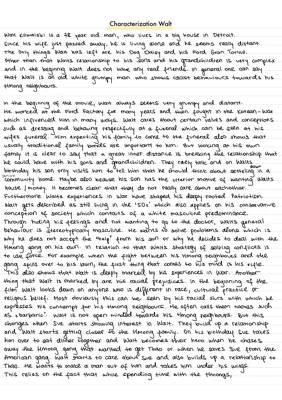 Characterization Walt
Walt Kowalski is a 78 year old man, who lives in a big house in Detroit.
Since his wife just passed away, he is living alone and he seems really distant.
The only things Walt has left are his dog Daisy and his Ford Gran Torino.
Other than that Walts relationship to his sons and his grandchildren is very complex
and in the beginning Walt does not have any real friends. In general one can say
that Walt is an old white grumpy man who shows racist behaviours towards his
Hmong neighbours.
In the beginning of the movie, Walt always seems very grumpy and distant.
He worked at the Ford factory for many years and even fought in the Korean-War
which influenced him in many ways. Walt cares about certain values and conceptions
such as dressing and behaving respectfully on a funeral which can be seen at his
wifes funeral. Him expecting his family to come to the funeral also shows that
usually traditional family bonds are important to him. But looking at his own
family it is clear to say that a great inner distance is breaking the relationship that
he could have with his sons and grandchildren. They rarely talk and on Walts
birthday his son only visits him to tell him that he should think about settling in a
community home. Maybe also because his son has the ulterior motive of wanting Walts
house / money. It becomes clear that they do not really care about each other.
Furthermore Walts experiences in war have shaped his deeply rooted patriotism.
Walt gets described as still living in the '50s' which also applies on his conservative
conception of society which consists of a white masculine predominance.
Through hiding his feelings and not wanting to go to the doctor, Walts general
behaviour is stereotypically masculine. He wants to solve problems alone which is
why he does not accept the "help" from his son or why he decides to deal with the
Hmong gang on his own. In relation to that Walts strategy of solving conflicts is
to use force. For example when the fight between his Hmong neighbours and the
gang spills over to his lawn, the first thing that comes to his mind is his rifle.
This also shows that Walt is deeply marked by his experiences in war. Another
thing that Walt is marked by are his racial prejudices. In the beginning of the
film Walt looks down on anyone who is different in race, cultural practise or
religious belief. Most obviously this can be seen by his racial slurs with which he
expresses his contempt for his Hmong neighbours. He often uses names such
as "barbaric". Walt is not open minded towards his Hmong neighbours. But this
changes when Sue starts showing interest in Walt. They build up a relationship
and Walt starts getting closer to the Hmong family. On his birthday Sue takes
him over to get dinner together and Walt becomes their hero when he chases
away the Hmong gang that wanted to get Thao or when he saves Sue from the
American gang. Walt starts to care about Sue and also builds up a relationship to
Thao. He wants to make a man out of him and takes him under his wings.
This relies on the fact that while spending time with the Hmongs,